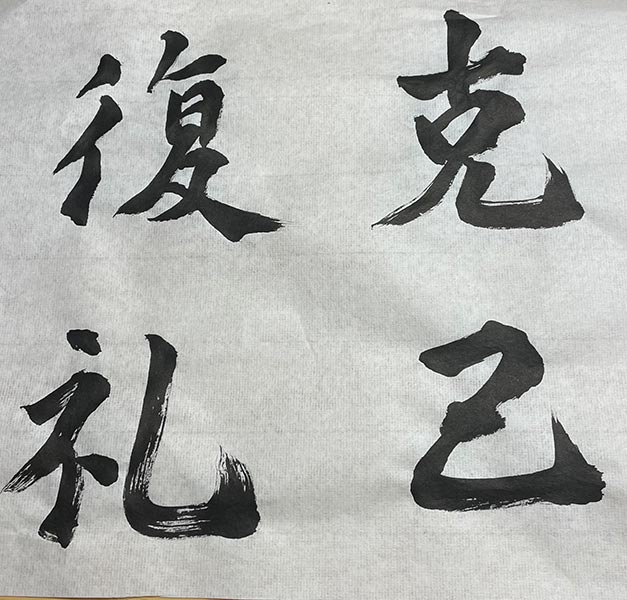 克己
復礼